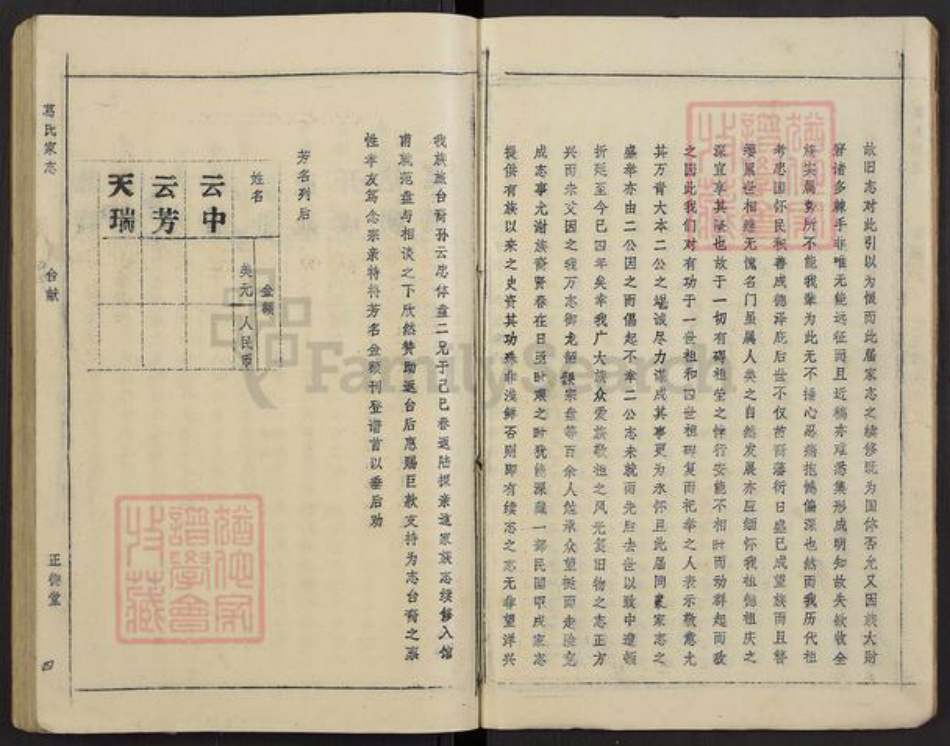 故旧志对此引以为恨而此届家志之续修既为国体否允又因族大财
窘诸多棘手非唯无能远征而且近稿亦难悉集形成明知故失欲收全
族实属势所不能我辈为此无不捶心忍痛抱憾偏深也然而我历代祖
考忠国怀民积善成德泽庇后世不仅苗裔藩衍日盛已成望族而且簪
缨累世相继无愧名门虽属人类之自然发展亦应缅怀我祖德祖庆之
深宜享其 也故于一切有碍祖茔之悖行安能不相时而动群起而攻
之因此我们对有功于一世祖和四世祖碑复而祀举之人表示敬意尤
其万青大本二公之竭诚尽力谋成其事更为永怀且此届同 家志之
盛举亦由二公因之而倡起不幸二公志未就而先后去世以致中道顿
折延至今已四年矣幸我广大族众爱族敬祖之风光复旧物之志正方
兴而未艾因之我万志御龙韶 宗盘等百余人 承众望挺而走险竟
成志事尤谢族裔贤春在日亟时艰之时我能深藏一部民国甲戌家志
提供有族以来之史资其功殊非浅鲜否则即有续志之志无非望洋兴
我族旅台裔孙云忠体盘二兄于己巳春返陆探亲适家族志续修入馆
甫就范盘与相谈之下欣然赞助返台后惠赐巨款支持为志台裔之孫
性孝友笃念宗亲特将芳名金额刊登谱首以垂后劝
芳名列后
姓名
金额
美元
人民币
云中
云芳
天瑞
葛氏家志
台献
正伦堂
四
FamilySearch